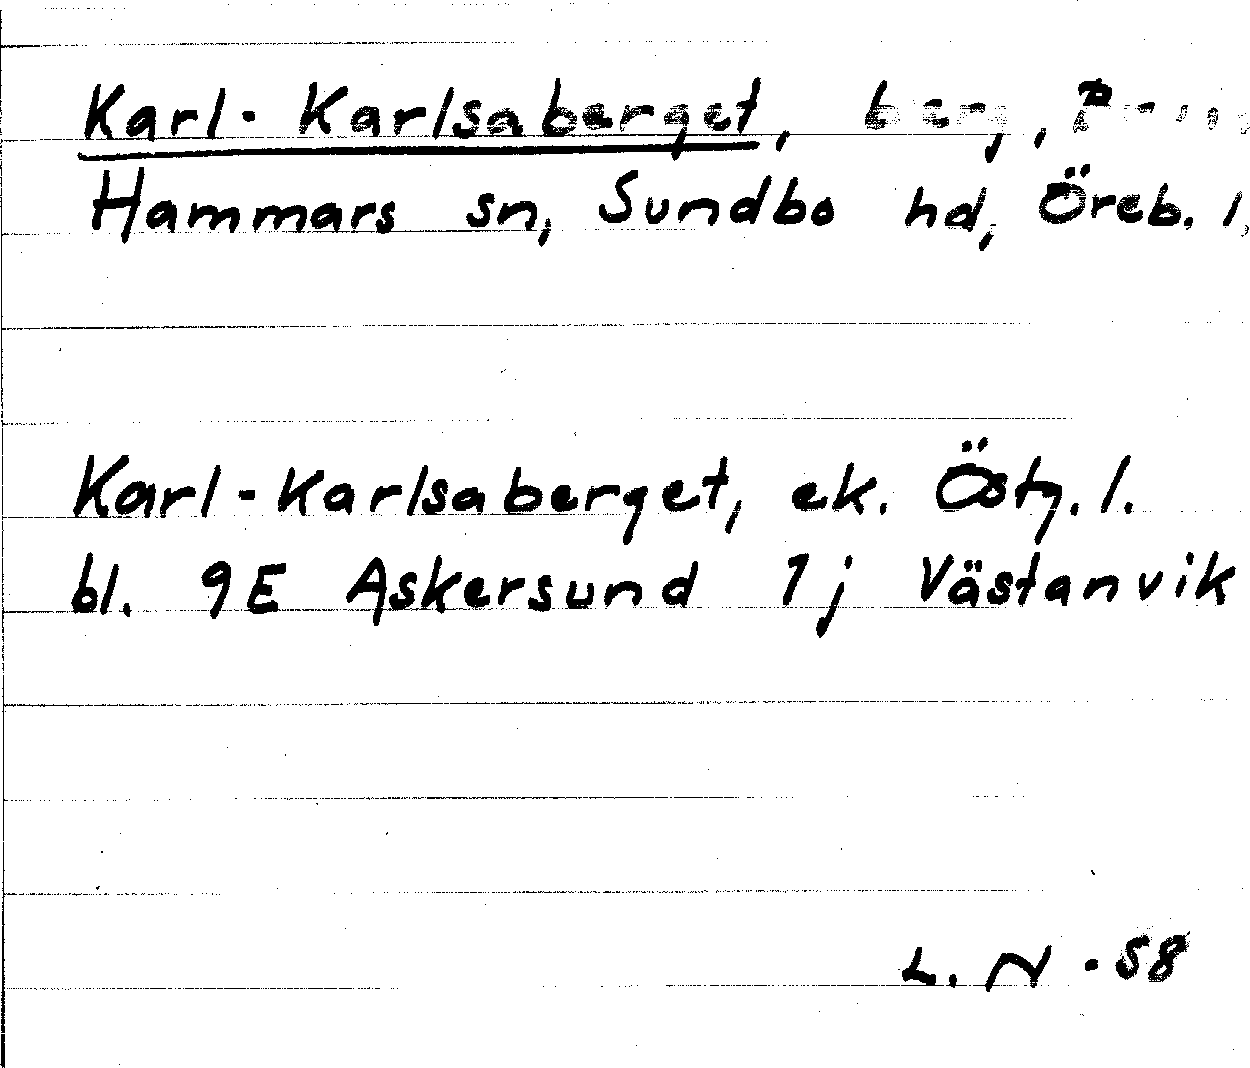 Karl-Karlsaberget, berg,
Hammars sn, Sundbo hd, Öreb. l,
Karl-Karlsaberget, ek. Östg. l.
bl. 9E Askersund 1j Västanvik
L. N -58